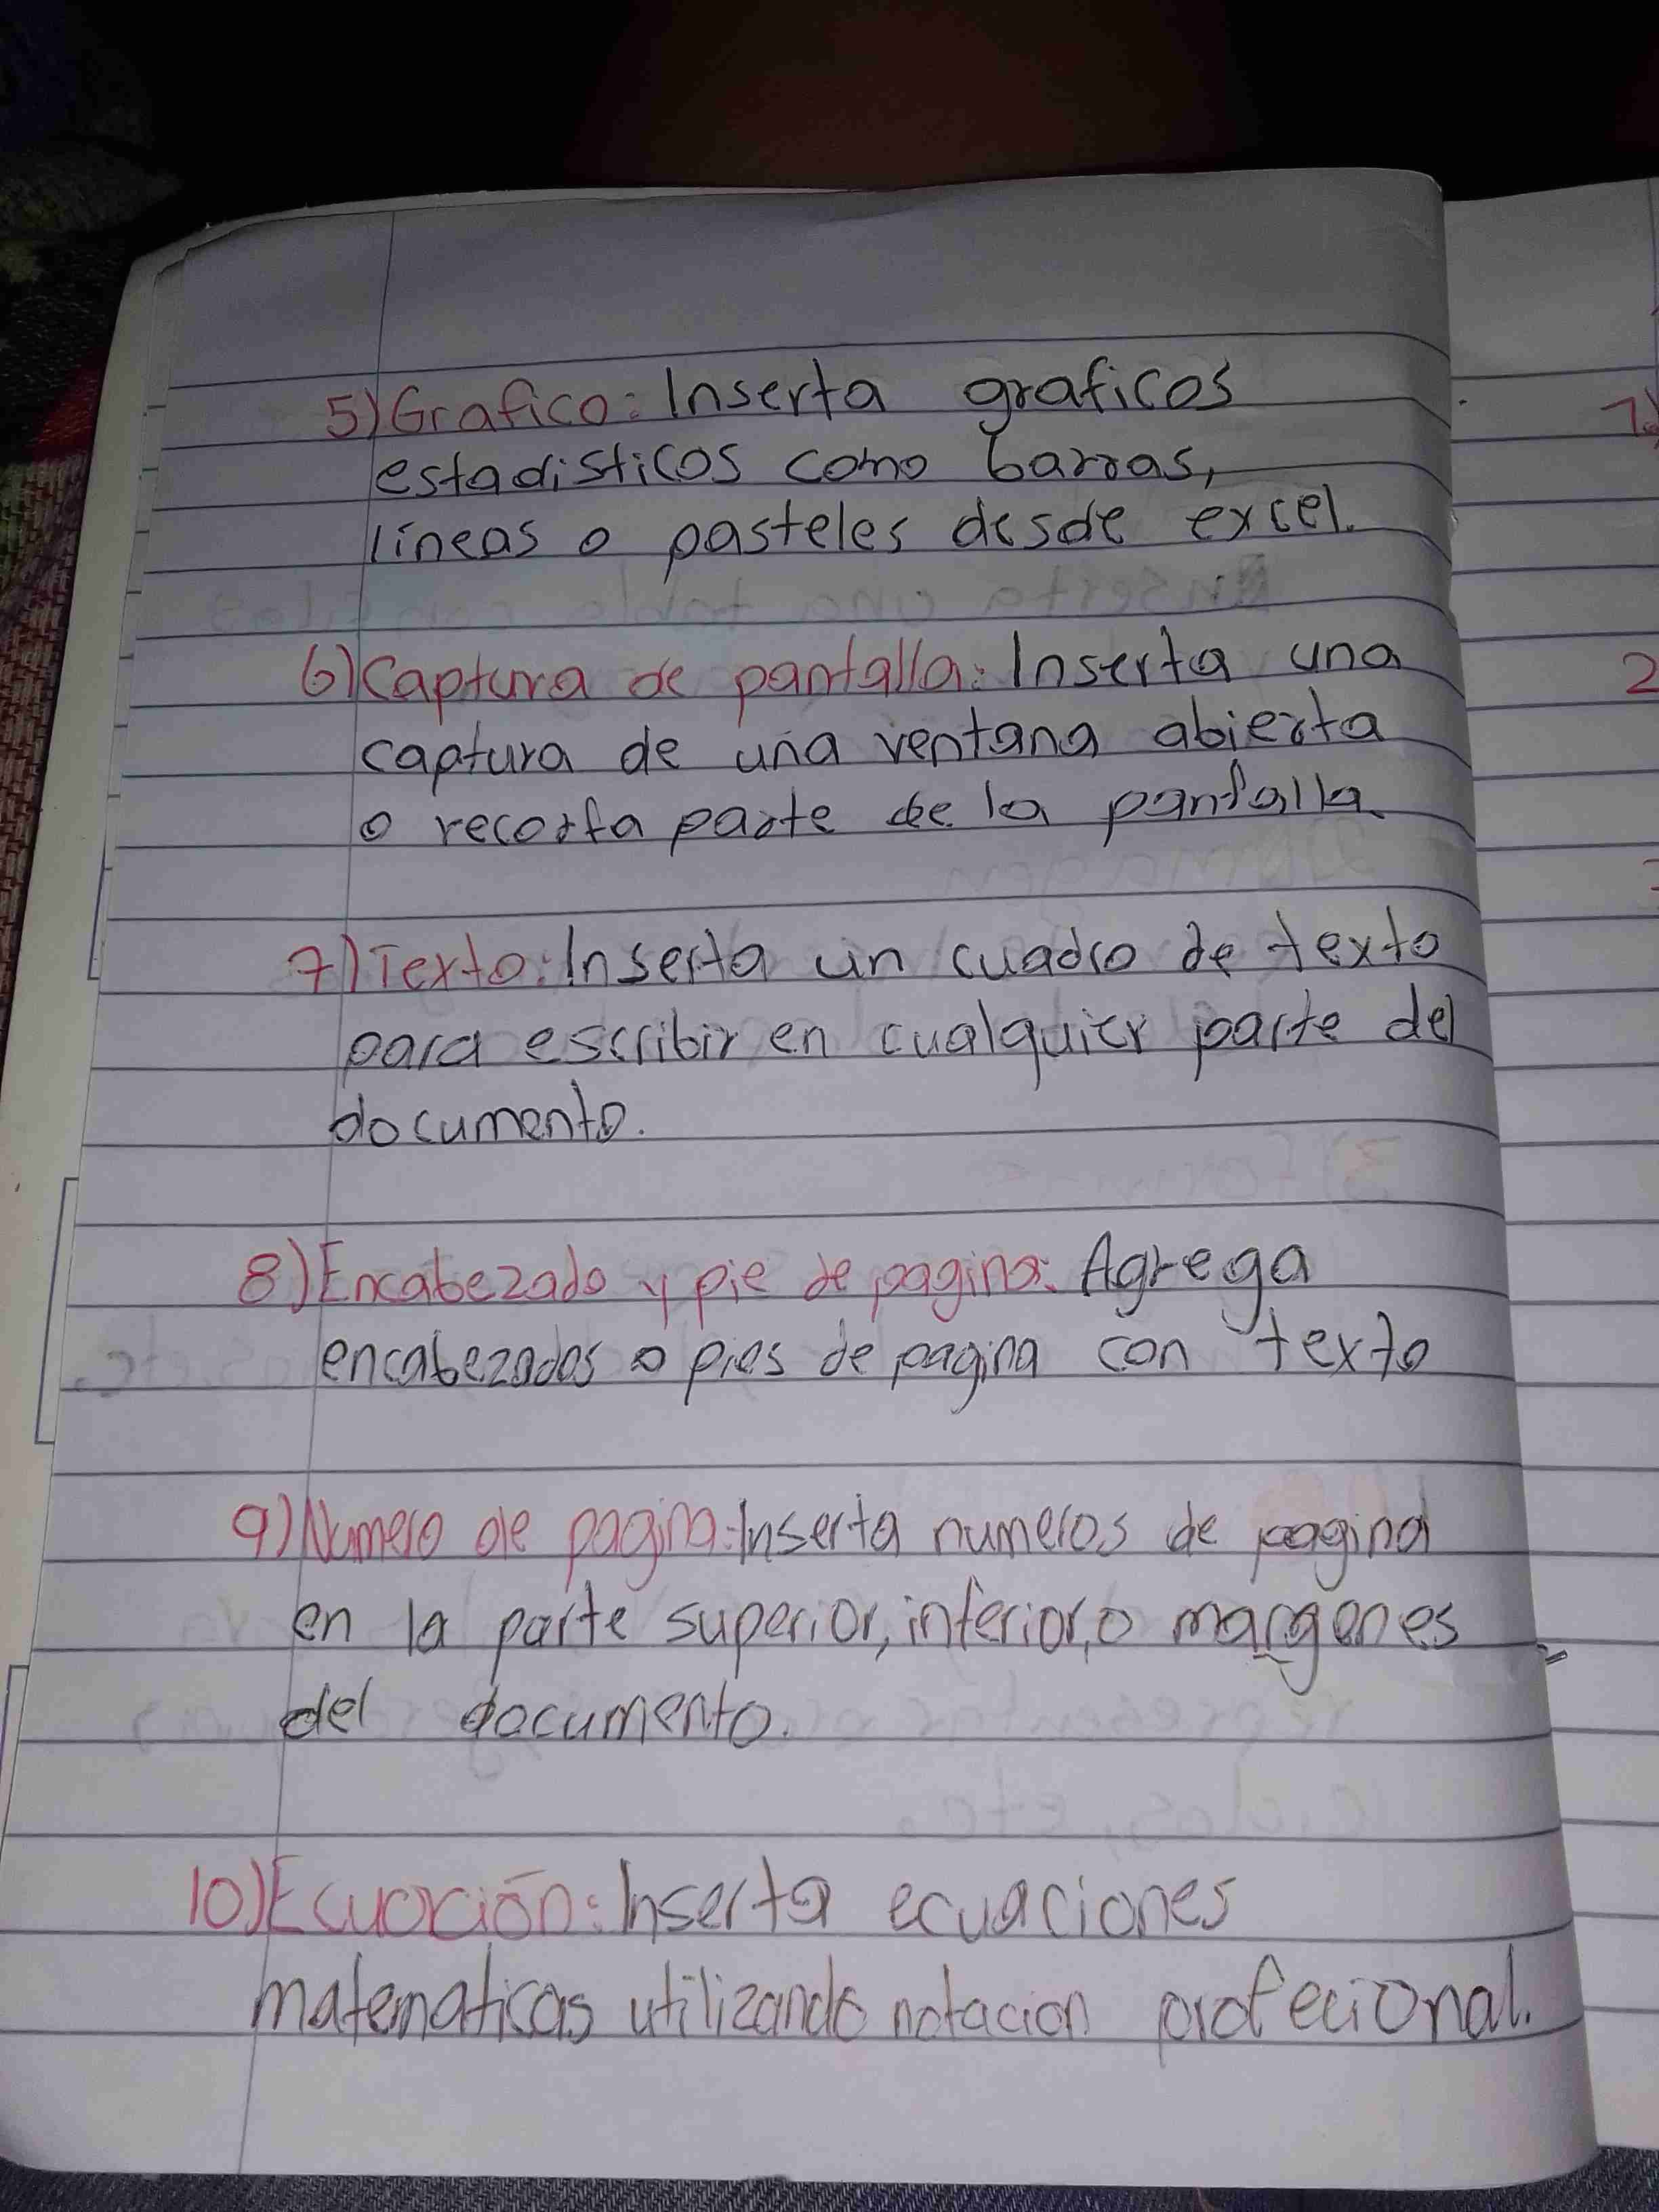 5) Grafico: Inserta graficos
estadisticos como barras,
líneas o pasteles desde excel.
6) Captura de pantalla: Inserta una
captura de una ventana abierta
o recorta parte de la pantalla
7) Texto: Inserta un cuadro de texto
para escribir en cualquier parte del
documento.
8) Encabezado y pie de pagina: Agrega
encabezados o pies de pagina con texto
9) Numero de pagina: Inserta numeros de pagina
en la parte superior, inferior, o margenes
del documento.
10) Ecuación: Inserta ecuaciones
matematicas utilizando notacion profecional.
2